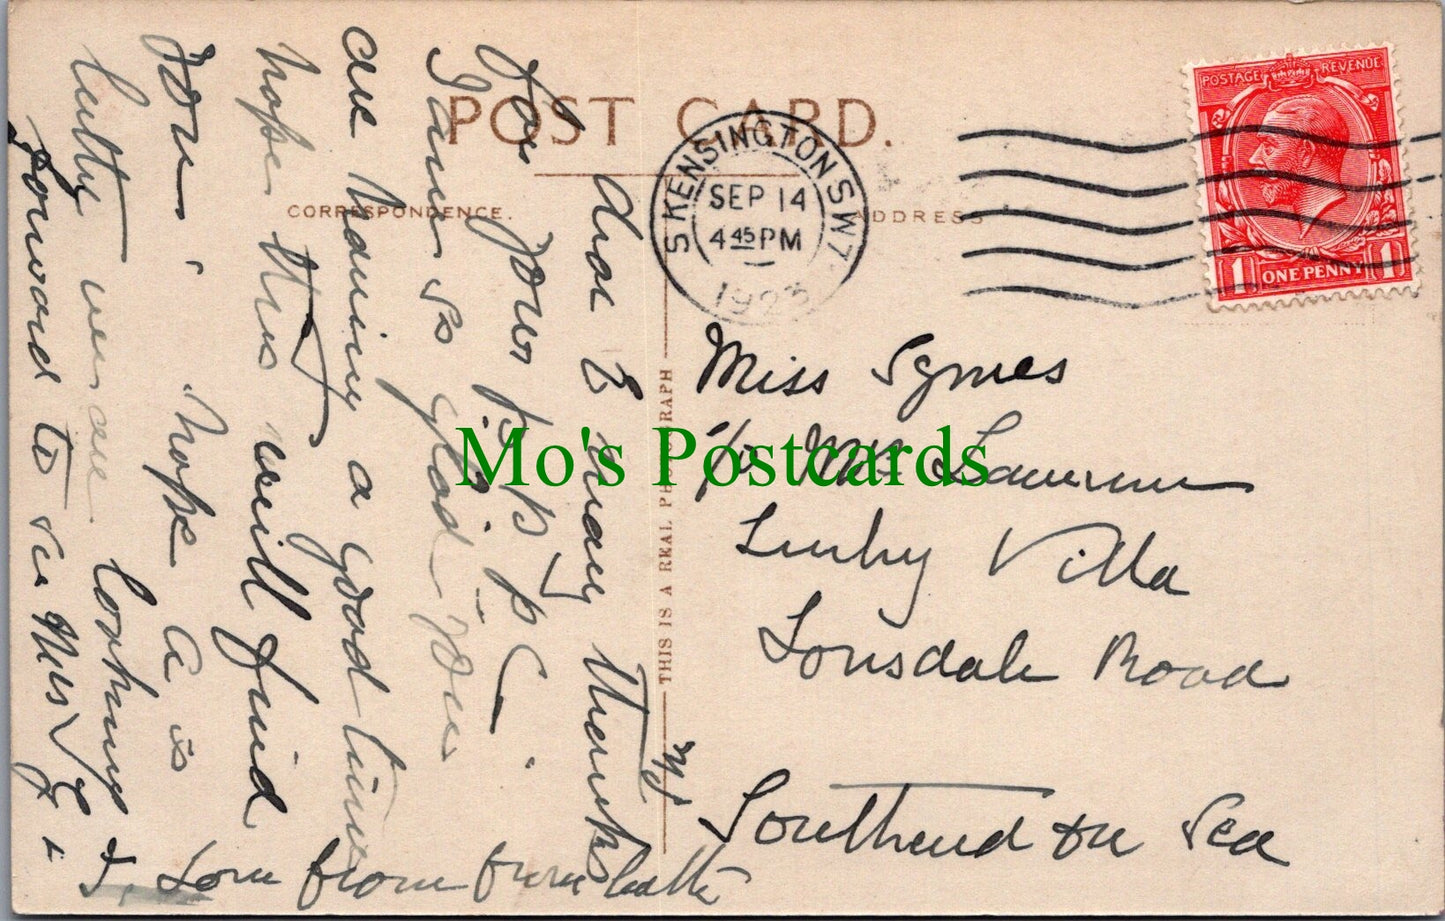 POST CARD.
CORRESPONDENCE.
ADDRESS
THIS IS A REAL PHOTOGRAPH
S. KENSINGTON S.W.7.
SEP 14
4 45 PM
1923
POSTAGE REVENUE
1 ONE PENNY 1
Mo's Postcards
Miss Symes
c/o Mrs
Villa
Lonsdale Road
Southend on Sea
dear E many thanks
for your p.p.c.
I am so glad you
are having a good time
hope this will find
you. hope A is
better we are looking
forward to see Mrs & E
love from